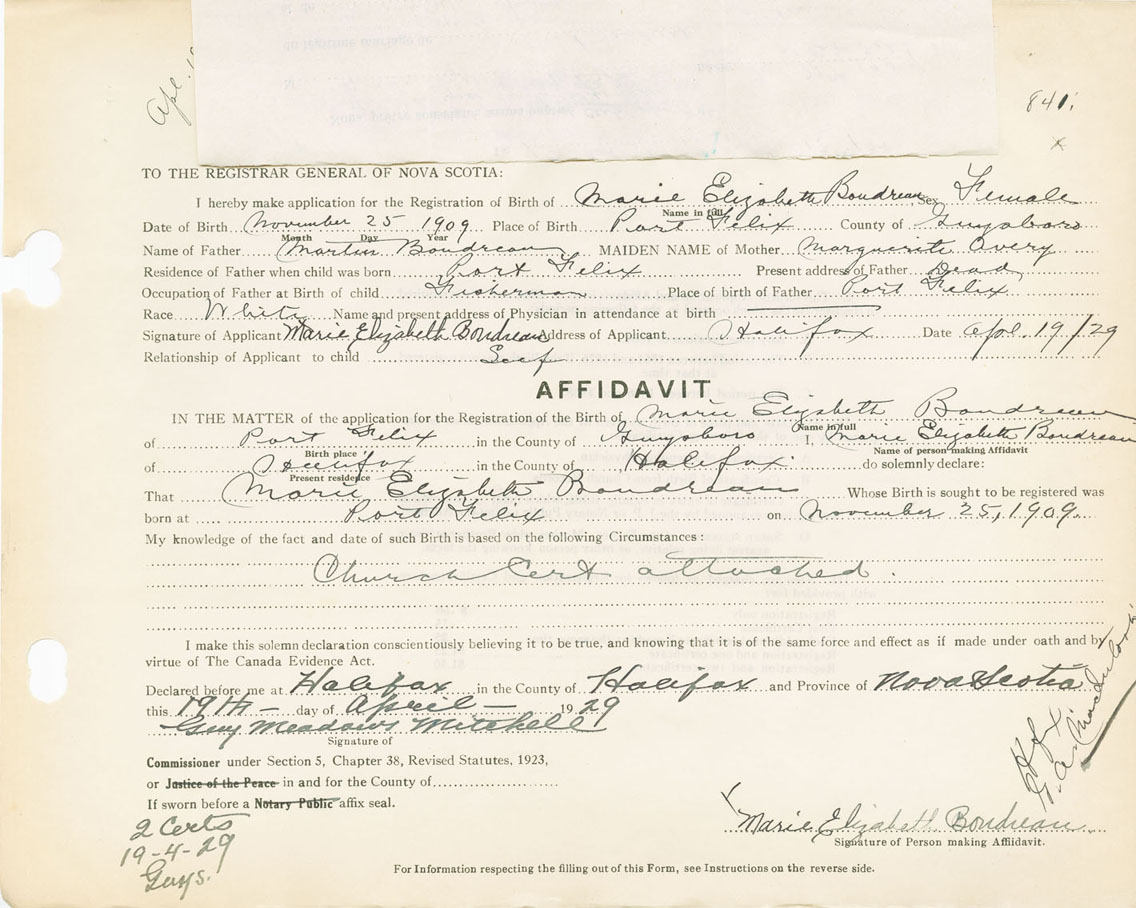 Apl. 19
841.
x
TO THE REGISTRAR GENERAL OF NOVA SCOTIA:
I hereby make application for the Registration of Birth of Marie Elizabeth Boudreau Sex Female
Name in full
Date of Birth November 25 1909 Place of Birth Port Felix County of Guysboro
Month Day Year
Name of Father Martin Boudreau MAIDEN NAME of Mother Marguerite Avery
Residence of Father when child was born Port Felix Present address of Father Dead
Occupation of Father at Birth of child Fisherman Place of birth of Father Port Felix
Race White Name and present address of Physician in attendance at birth
Signature of Applicant Marie Elizabeth Boudreau Address of Applicant Halifax Date Apl. 19/29
Relationship of Applicant to child Seef
AFFIDAVIT
IN THE MATTER of the application for the Registration of the Birth of Marie Elizabeth Boudreau
Name in full
of Port Felix in the County of Guysboro I, Marie Elizabeth Boudreau
Birth place Name of person making Affidavit
of Halifax in the County of Halifax do solemnly declare:
Present residence
That Marie Elizabeth Boudreau Whose Birth is sought to be registered was
born at Port Felix on November 25, 1909.
My knowledge of the fact and date of such Birth is based on the following Circumstances:
Church Cert attached.
I make this solemn declaration conscientiously believing it to be true, and knowing that it is of the same force and effect as if made under oath and by
virtue of The Canada Evidence Act.
Declared before me at Halifax in the County of Halifax and Province of Nova Scotia
this 19th - day of April - 1929
Guy Meadows Mitchell
Signature of
Commissioner under Section 5, Chapter 38, Revised Statutes, 1923,
or Justice of the Peace in and for the County of
If sworn before a Notary Public affix seal.
2 Certs
19-4-29
Guys.
Hfx
Marie Elizabeth Boudreau
Signature of Person making Affidavit.
For Information respecting the filling out of this Form, see Instructions on the reverse side.